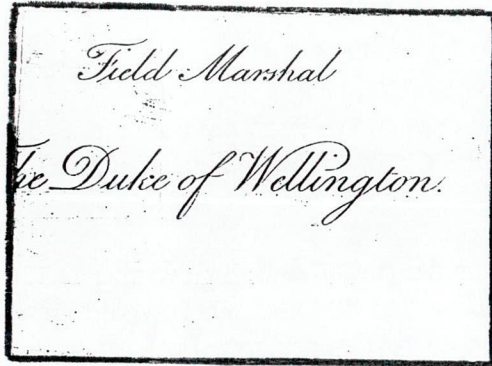 Field Marshal
The Duke of Wellington.